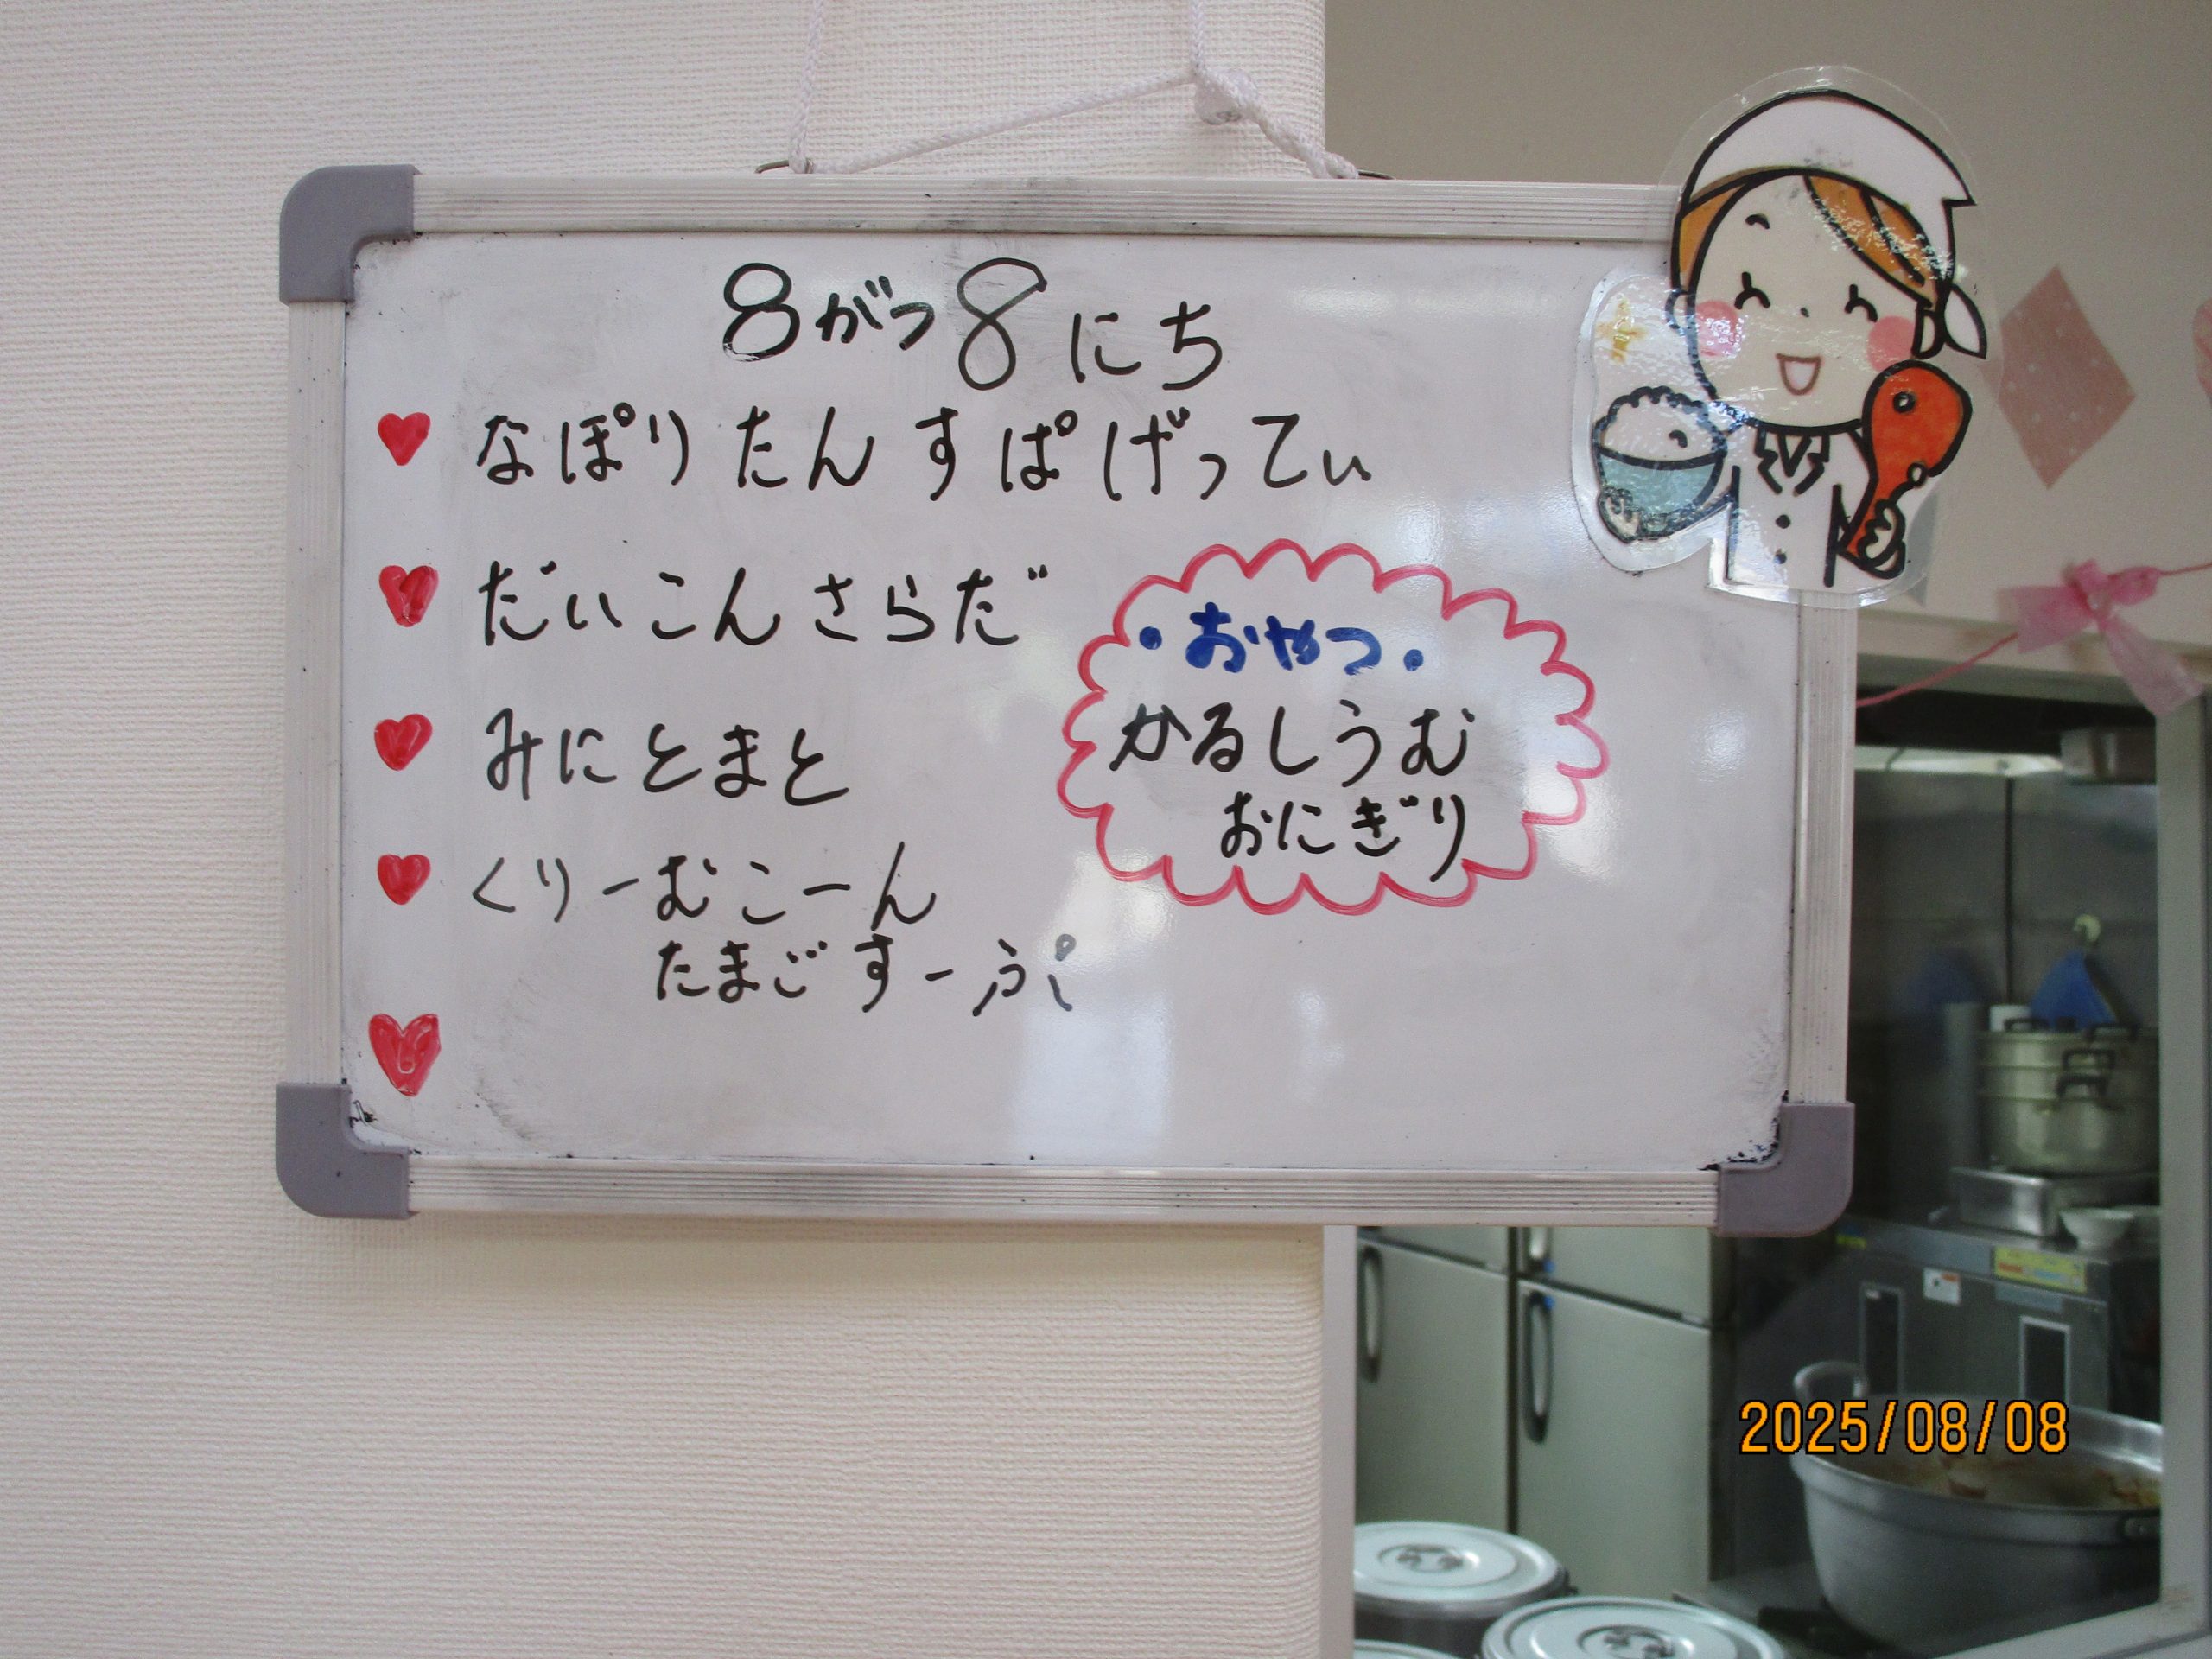 8がつ8にち
なぽりたんすぱげってぃ
だいこんさらだ
みにとまと
くりーむこーん
たまごすーぷ
・おやつ・
かるしうむ
おにぎり
2025/08/08